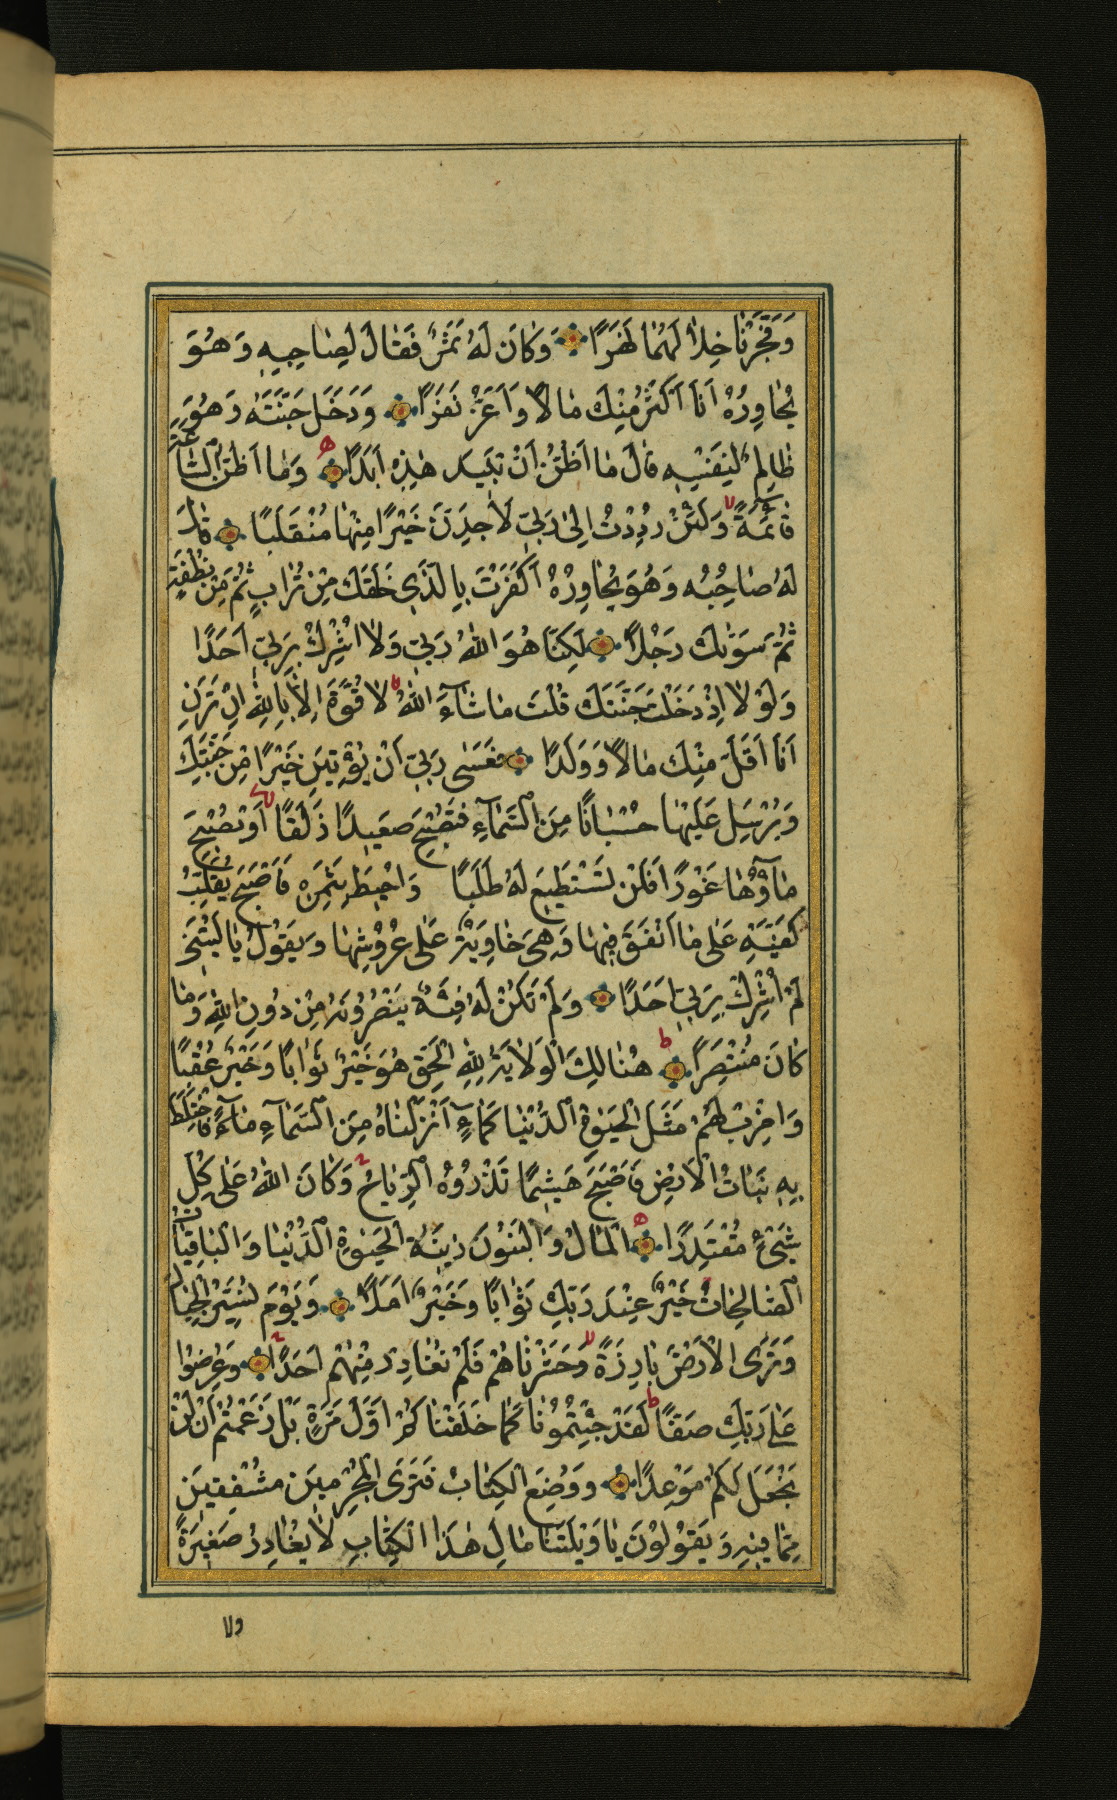 وَفَجَّرْنَا خِلَالَهُمَا نَهَرًا وَكَانَ لَهُ ثَمَرٌ فَقَالَ لِصَاحِبِهِ وَهُوَ
يُحَاوِرُهُ اَنَا اَكْثَرُ مِنْكَ مَالًا وَاَعَزُّ نَفَرًا وَدَخَلَ جَنَّتَهُ وَهُوَ
ظَالِمٌ لِنَفْسِهِ قَالَ مَا اَظُنُّ اَنْ تَبِيدَ هٰذِهِ اَبَدًا وَمَا اَظُنُّ السَّاعَةَ
قَائِمَةً وَلَئِنْ رُدِدْتُ اِلٰى رَبِّى لَاَجِدَنَّ خَيْرًا مِنْهَا مُنْقَلَبًا قَالَ
لَهُ صَاحِبُهُ وَهُوَ يُحَاوِرُهُ اَكَفَرْتَ بِالَّذِى خَلَقَكَ مِنْ تُرَابٍ ثُمَّ مِنْ نُطْفَةٍ
ثُمَّ سَوّٰيكَ رَجُلًا لٰكِنَّا هُوَ اللهُ رَبِّى وَلَا اُشْرِكُ بِرَبِّى اَحَدًا
وَلَوْلَا اِذْ دَخَلْتَ جَنَّتَكَ قُلْتَ مَا شَآءَ اللهُ لَا قُوَّةَ اِلَّا بِاللهِ اِنْ تَرَنِ
اَنَا اَقَلَّ مِنْكَ مَالًا وَوَلَدًا فَعَسٰى رَبِّى اَنْ يُؤْتِيَنِ خَيْرًا مِنْ جَنَّتِكَ
وَيُرْسِلَ عَلَيْهَا حُسْبَانًا مِنَ السَّمَآءِ فَتُصْبِحَ صَعِيدًا زَلَقًا اَوْ يُصْبِحَ
مَآؤُهَا غَوْرًا فَلَنْ تَسْتَطِيعَ لَهُ طَلَبًا وَاُحِيطَ بِثَمَرِهِ فَاَصْبَحَ يُقَلِّبُ
كَفَّيْهِ عَلٰى مَا اَنْفَقَ فِيهَا وَهِىَ خَاوِيَةٌ عَلٰى عُرُوشِهَا وَيَقُولُ يَا لَيْتَنِى
لَمْ اُشْرِكْ بِرَبِّى اَحَدًا وَلَمْ تَكُنْ لَهُ فِئَةٌ يَنْصُرُونَهُ مِنْ دُونِ اللهِ وَمَا
كَانَ مُنْتَصِرًا هُنَالِكَ الْوَلَايَةُ لِلّٰهِ الْحَقِّ هُوَ خَيْرٌ ثَوَابًا وَخَيْرٌ عُقْبًا
وَاضْرِبْ لَهُمْ مَثَلَ الْحَيٰوةِ الدُّنْيَا كَمَآءٍ اَنْزَلْنَاهُ مِنَ السَّمَآءِ مَآءً فَاخْتَلَطَ
بِهِ نَبَاتُ الْاَرْضِ فَاَصْبَحَ هَشِيمًا تَذْرُوهُ الرِّيَاحُ وَكَانَ اللهُ عَلٰى كُلِّ
شَىْءٍ مُقْتَدِرًا اَلْمَالُ وَالْبَنُونَ زِينَةُ الْحَيٰوةِ الدُّنْيَا وَالْبَاقِيَاتُ
الصَّالِحَاتُ خَيْرٌ عِنْدَ رَبِّكَ ثَوَابًا وَخَيْرٌ اَمَلًا وَيَوْمَ نُسَيِّرُ الْجِبَالَ
وَتَرَى الْاَرْضَ بَارِزَةً وَحَشَرْنَاهُمْ فَلَمْ نُغَادِرْ مِنْهُمْ اَحَدًا وَعُرِضُوا
عَلٰى رَبِّكَ صَفًّا لَقَدْ جِئْتُمُونَا كَمَا خَلَقْنَاكُمْ اَوَّلَ مَرَّةٍ بَلْ زَعَمْتُمْ اَنْ لَنْ
نَجْعَلَ لَكُمْ مَوْعِدًا وَوُضِعَ الْكِتَابُ فَتَرَى الْمُجْرِمِينَ مُشْفِقِينَ
مِمَّا فِيهِ وَيَقُولُونَ يَا وَيْلَتَنَا مَالِ هٰذَا الْكِتَابِ لَا يُغَادِرُ صَغِيرَةً
ولا